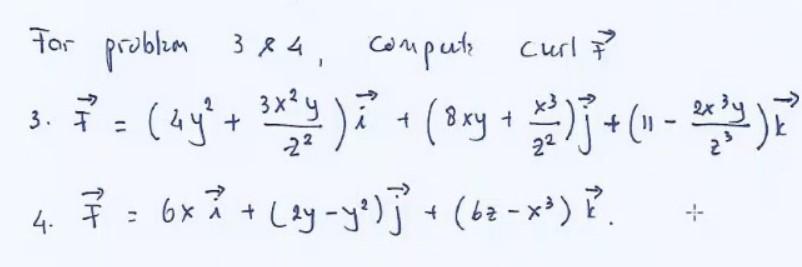 For problem 3 & 4, compute curl F⃗
3. F⃗ = (4y² + 3x²y/z²) i⃗ + (8xy + x³/z²) j⃗ + (11 - 2x³y/z³) k⃗
4. F⃗ = 6x i⃗ + (2y - y²) j⃗ + (6z - x³) k⃗.